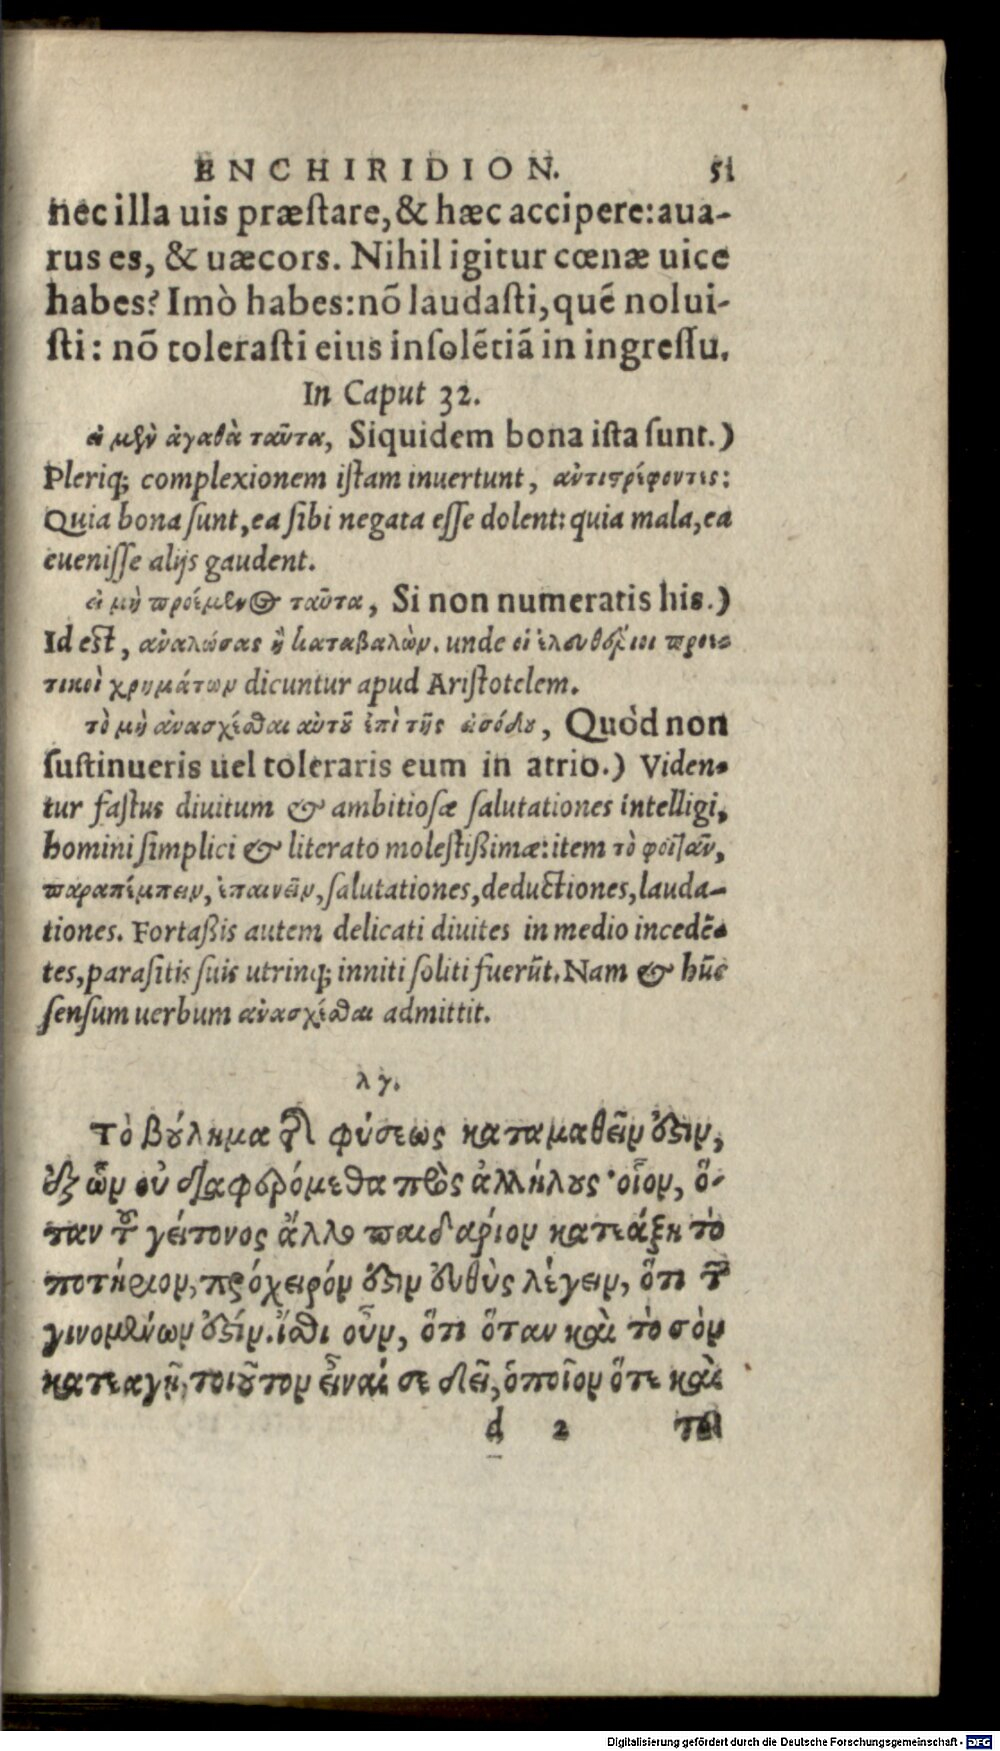 ENCHIRIDION. 51
nec illa uis præstare, & hæc accipere: aua-
rus es, & uæcors. Nihil igitur cœnæ uice
habes? Imò habes: nō laudasti, quē nolui-
sti: nō tolerasti eius insolētiā in ingressu.
In Caput 32.
εἰ μὲν ἀγαθὰ ταῦτα, Siquidem bona ista sunt.)
Pleriq; complexionem istam inuertunt, αὐτιστρέφοντες:
Quia bona sunt, ea sibi negata esse dolent: quia mala, ea
euenisse alijs gaudent.
εἰ μὴ προέμενος ταῦτα, Si non numeratis his.)
Id est, ἀναλώσας ἢ καταβαλὼν. unde οἱ ἐλευθέριοι προε-
τικοὶ χρημάτων dicuntur apud Aristotelem.
τὸ μὴ ἀνασχέσθαι αὐτοῦ ἐπὶ τῆς εἰσόδου, Quòd non
sustinueris uel toleraris eum in atrio.) Viden-
tur fastus diuitum & ambitiosæ salutationes intelligi,
homini simplici & literato molestißimæ: item τὸ φοιτᾶν,
παραπέμπειν, ἐπαινεῖν, salutationes, deductiones, lauda-
tiones. Fortaßis autem delicati diuites in medio incedē-
tes, parasitis suis utrinq; inniti soliti fuerūt. Nam & hūc
sensum uerbum ἀνασχέσθαι admittit.
λγ.
Τὸ βούλημα τῆς φύσεως καταμαθεῖν ἔστιν,
ἐξ ὧν οὐ διαφερόμεθα πρὸς ἀλλήλους· οἷον, ὅ-
ταν τοῦ γείτονος ἄλλο παιδάριον κατεάξῃ τὸ
ποτήριον, πρόχειρόν ἔστιν εὐθὺς λέγειν, ὅτι τῶν
γινομένων ἐστίν. ἴσθι οὖν, ὅτι ὅταν καὶ τὸ σὸν
κατεαγῇ, τοιοῦτον εἶναί σε δεῖ, ὁποῖον ὅτε καὶ
d 2 τὸ
Digitalisierung gefördert durch die Deutsche Forschungsgemeinschaft - DFG